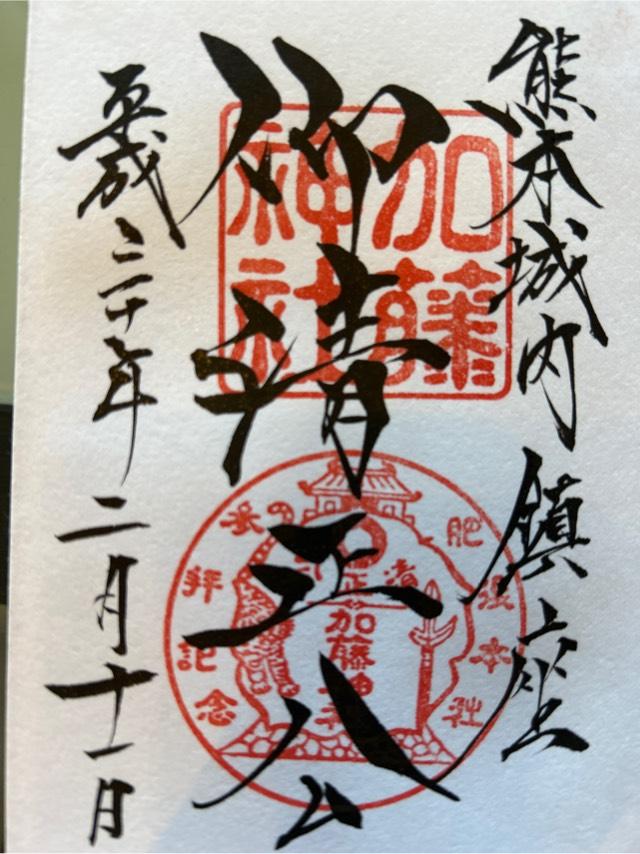 熊本城内鎮座
仰清正公
平成三十年二月十一日
加藤
神社
肥後本社
参拝記念
加藤神社